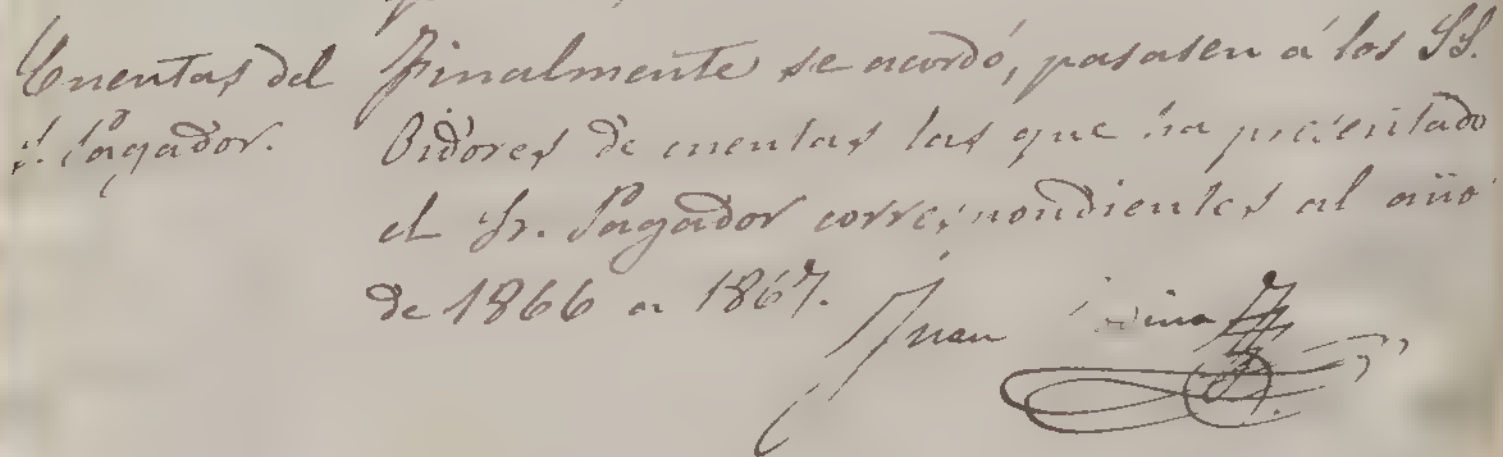 Cuentas del
S. Pagador.
Finalmente se acordó, pasasen á los SS.
Oidores de cuentas las que ha presentado
el Sr. Pagador correspondientes al año
de 1866 a 1867.
Juan